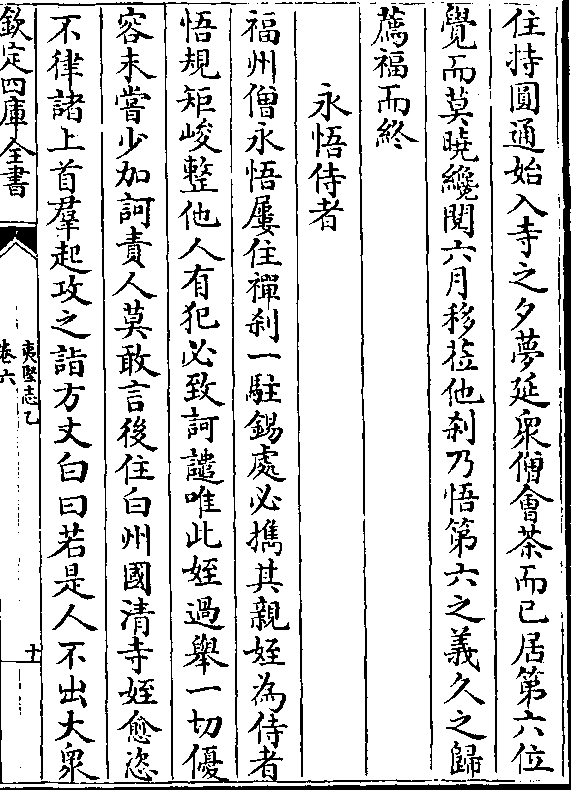 住持圓通始入寺之夕夢延衆僧會茶而已居第六位
覺而莫曉纔閲六月移莅他刹乃悟第六之義久之歸
薦福而終
永悟侍者
福州僧永悟屢住禪刹一駐錫處必攜其親姪為侍者
悟規矩峻整他人有犯必致訶譴唯此姪過舉一切優
容未嘗少加訶責人莫敢言後住白州國清寺姪愈恣
不律諸上首羣起攻之詣方丈白曰若是人不出大衆
欽定四庫全書
夷堅志乙
卷六
十